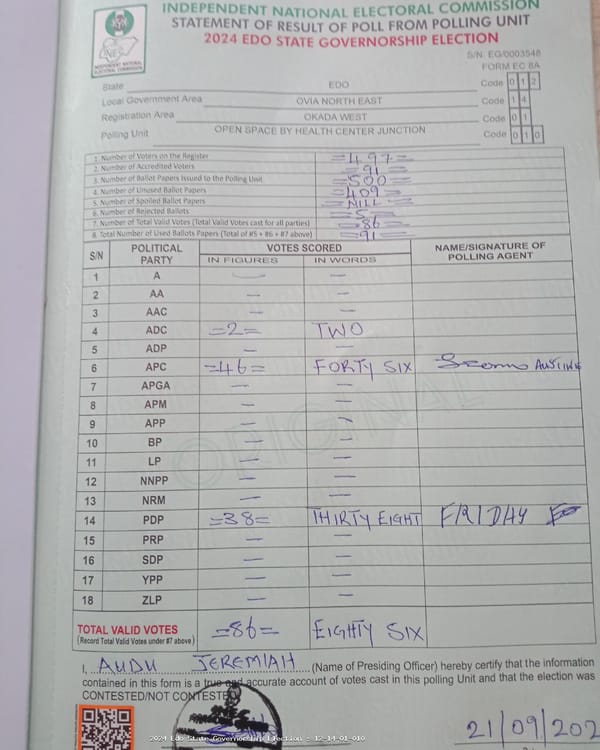 INDEPENDENT NATIONAL ELECTORAL COMMISSION
STATEMENT OF RESULT OF POLL FROM POLLING UNIT
2024 EDO STATE GOVERNORSHIP ELECTION
S/N. EG/0003548
FORM EC 8A
State EDO Code 0 1 2
Local Government Area OVIA NORTH EAST Code 1 4
Registration Area OKADA WEST Code 0 1
Polling Unit OPEN SPACE BY HEALTH CENTER JUNCTION Code 0 1 0
1. Number of Voters on the Register =497=
2. Number of Accredited Voters =91=
3. Number of Ballot Papers Issued to the Polling Unit =500=
4. Number of Unused Ballot Papers =409=
5. Number of Spoiled Ballot Papers =NILL=
6. Number of Rejected Ballots =5=
7. Number of Total Valid Votes (Total Valid Votes cast for all parties) =86=
8. Total Number of Used Ballots Papers (Total of #5 + #6 + #7 above) =91=
S/N POLITICAL PARTY VOTES SCORED NAME/SIGNATURE OF POLLING AGENT
IN FIGURES IN WORDS
1 A — —
2 AA — —
3 AAC — —
4 ADC =2= TWO
5 ADP — —
6 APC =46= FORTY SIX AUSTINE
7 APGA — —
8 APM — —
9 APP — —
10 BP — —
11 LP — —
12 NNPP — —
13 NRM — —
14 PDP =38= THIRTY EIGHT FRIDAY
15 PRP — —
16 SDP — —
17 YPP — —
18 ZLP — —
TOTAL VALID VOTES =86= EIGHTY SIX
(Record Total Valid Votes under #7 above)
I, AUDU JEREMIAH (Name of Presiding Officer) hereby certify that the information
contained in this form is a true and accurate account of votes cast in this polling Unit and that the election was
CONTESTED/NOT CONTESTED
21/09/202
2024 Edo State Governorship Election - 12-14-01-010